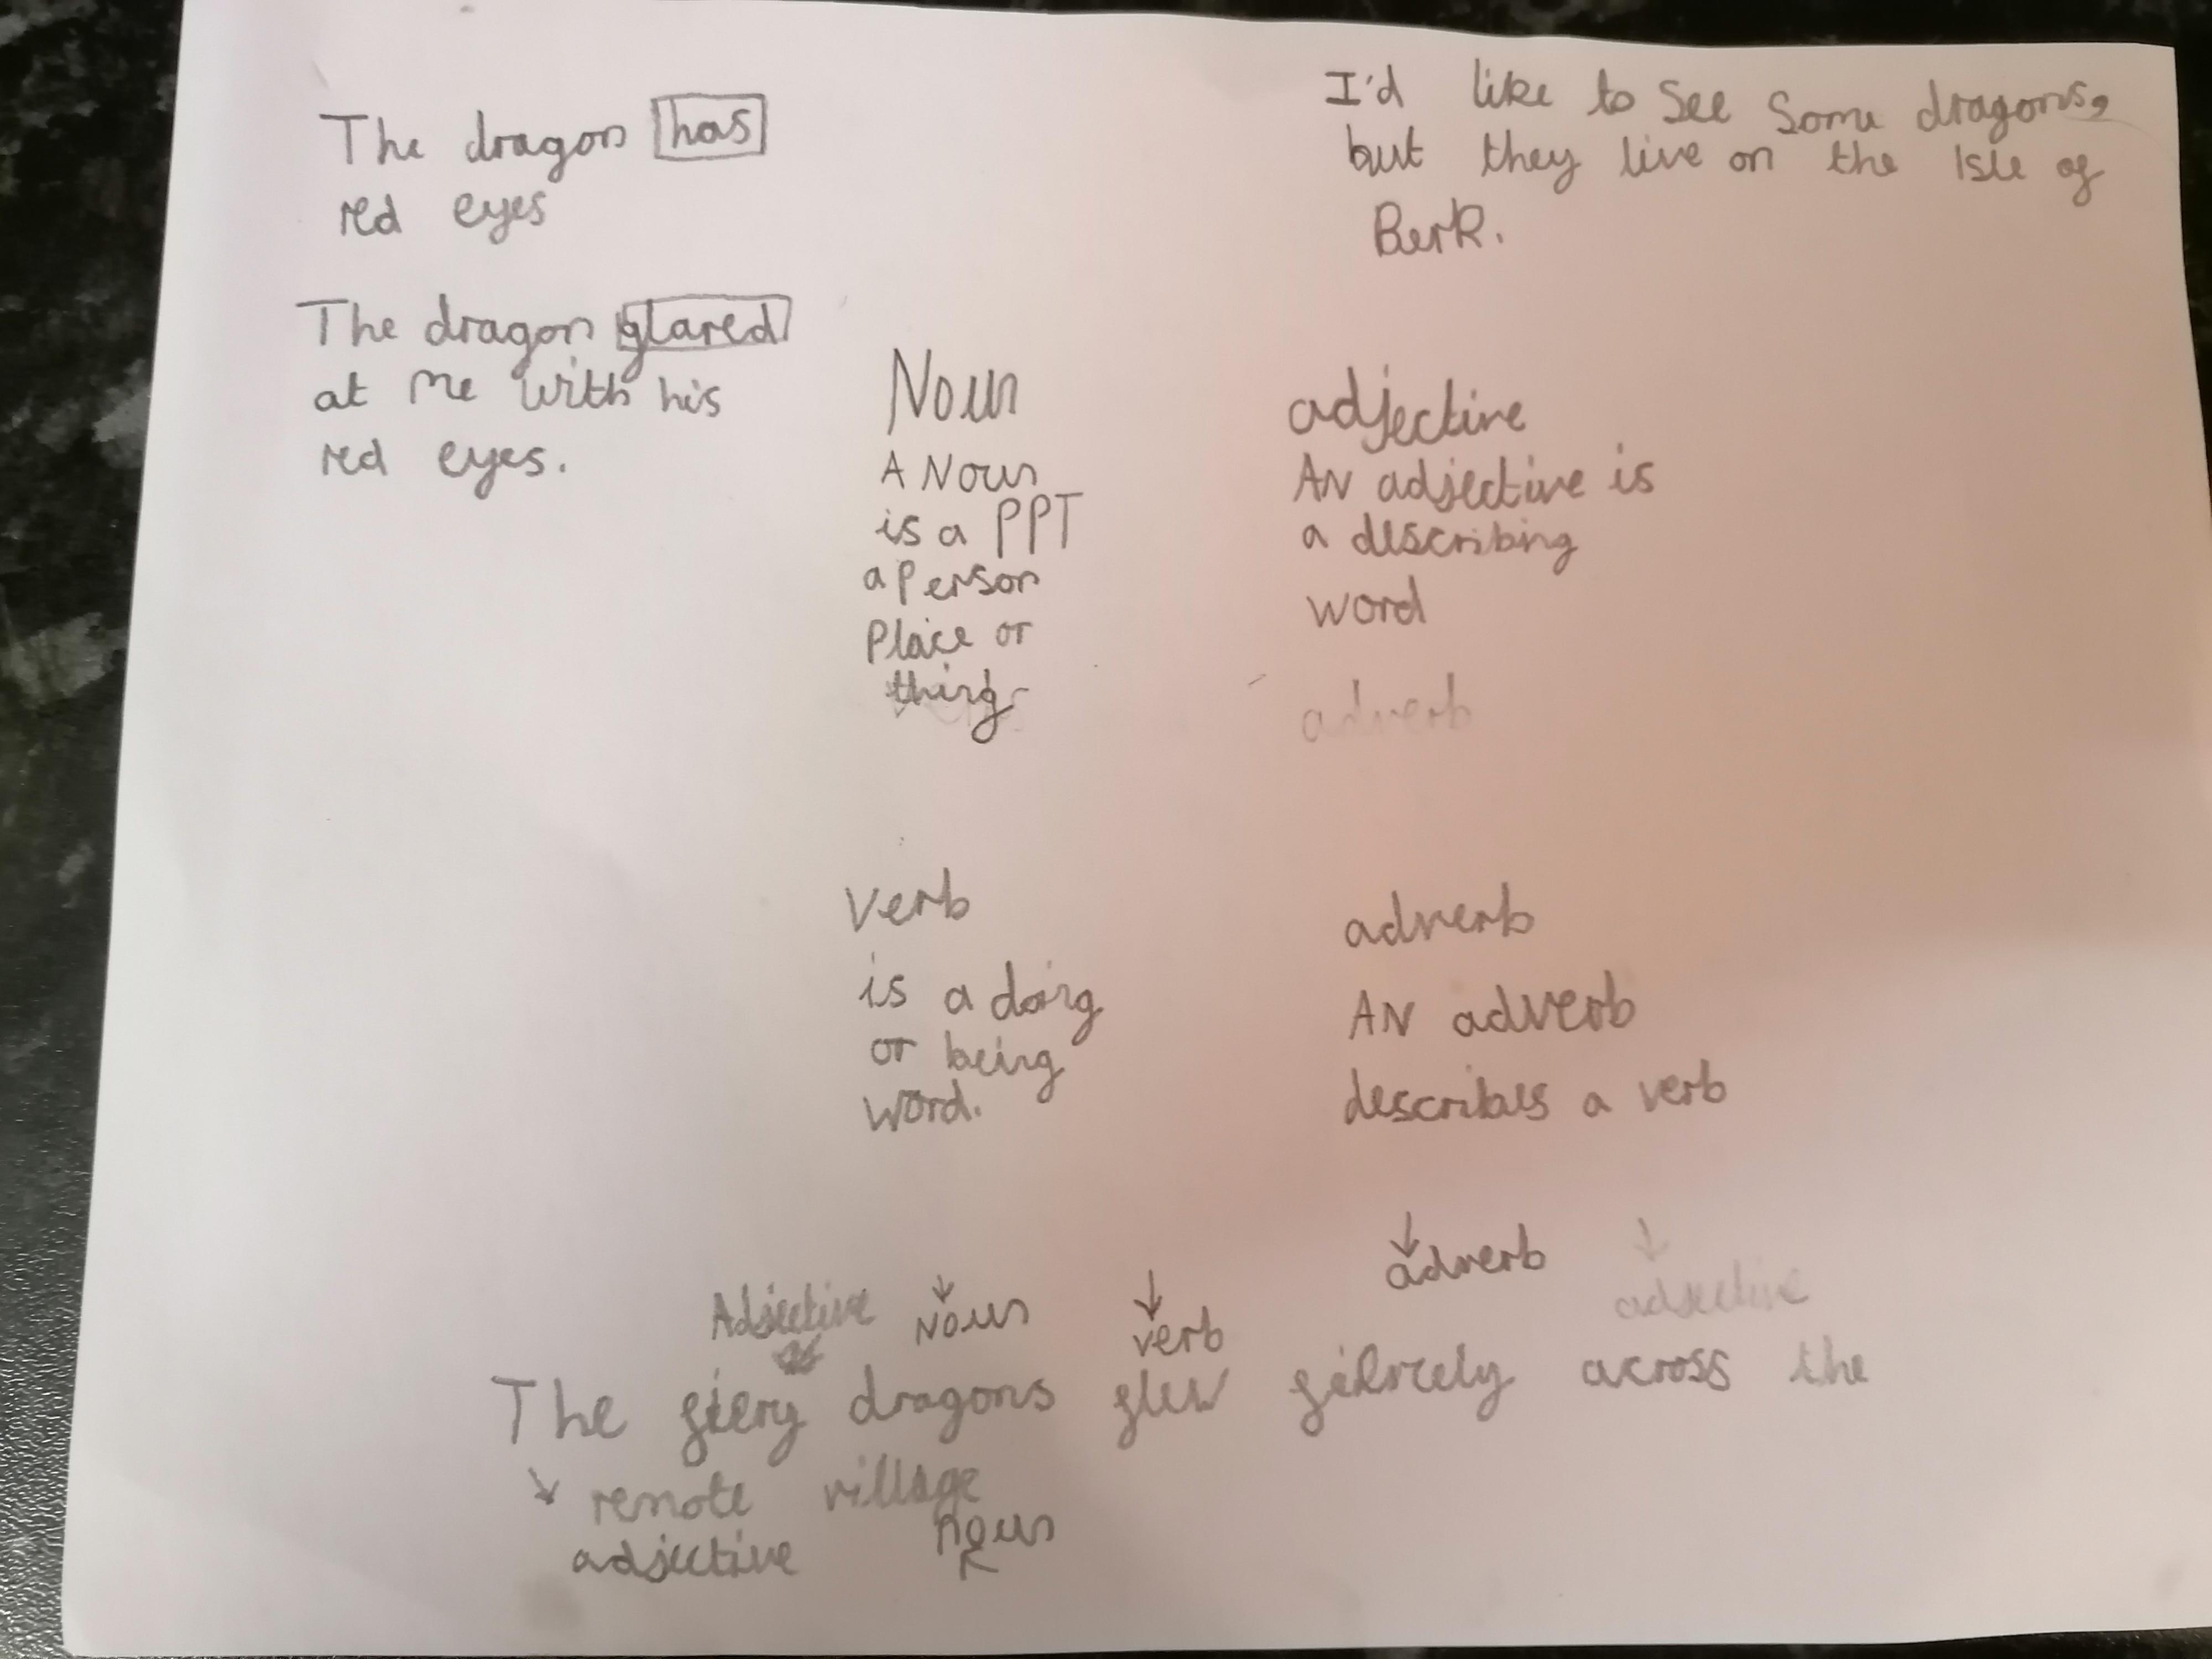 The dragon has
red eyes
The dragon glared
at me with his
red eyes.
I'd like to see some dragons,
but they live on the Isle of
Berk.
Noun
A Noun
is a PPT
a Person
Place or
thing
adjective
AN adjective is
a describing
word
adverb
verb
is a doing
or being
word.
adverb
AN adverb
describes a verb
Adjective Noun verb adverb adjective
The fiery dragons flew across the
remote village
adjective noun